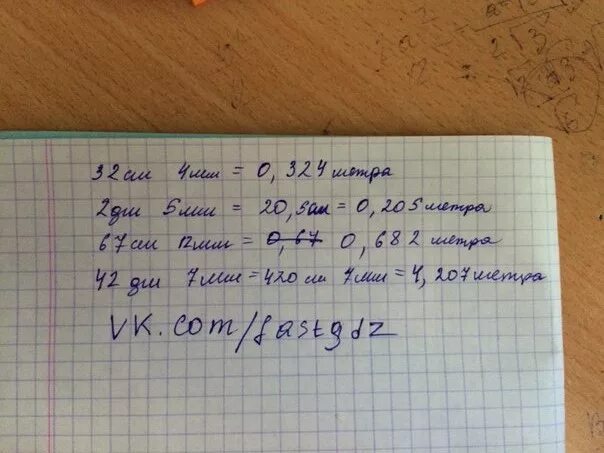 32см 4мм = 0,324 метра
2дм 5мм = 20,5см = 0,205 метра
67см 12мм = 0,67 0,682 метра
42 дм 7мм = 420 см 7мм = 4,207 метра
VK.com/fastgdz